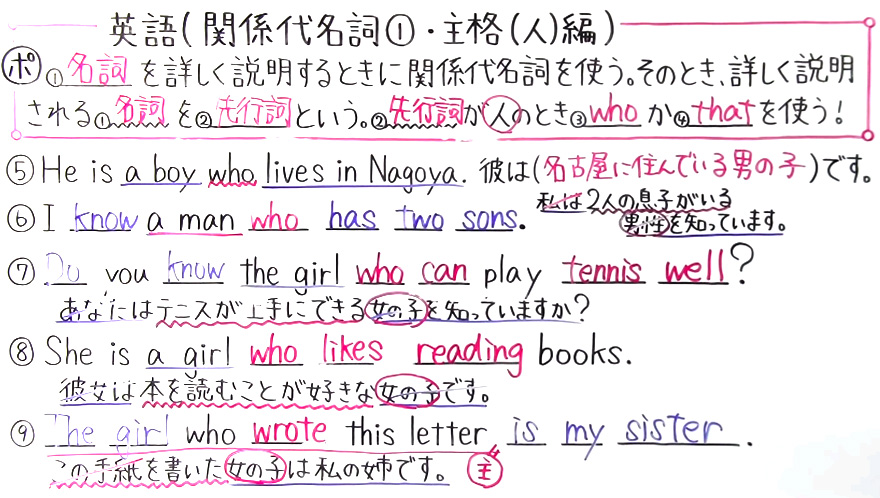 英語(関係代名詞①・主格(人)編)
ポ ①名詞を詳しく説明するときに関係代名詞を使う。そのとき、詳しく説明
される①名詞を②先行詞という。②先行詞が人のとき③whoか④thatを使う!
⑤ He is a boy who lives in Nagoya. 彼は(名古屋に住んでいる男の子)です。
⑥ I know a man who has two sons. 私は2人の息子がいる
男性を知っています。
⑦ Do you know the girl who can play tennis well?
あなたはテニスが上手にできる女の子を知っていますか?
⑧ She is a girl who likes reading books.
彼女は本を読むことが好きな女の子です。
⑨ The girl who wrote this letter is my sister.
この手紙を書いた女の子は私の姉です。 主